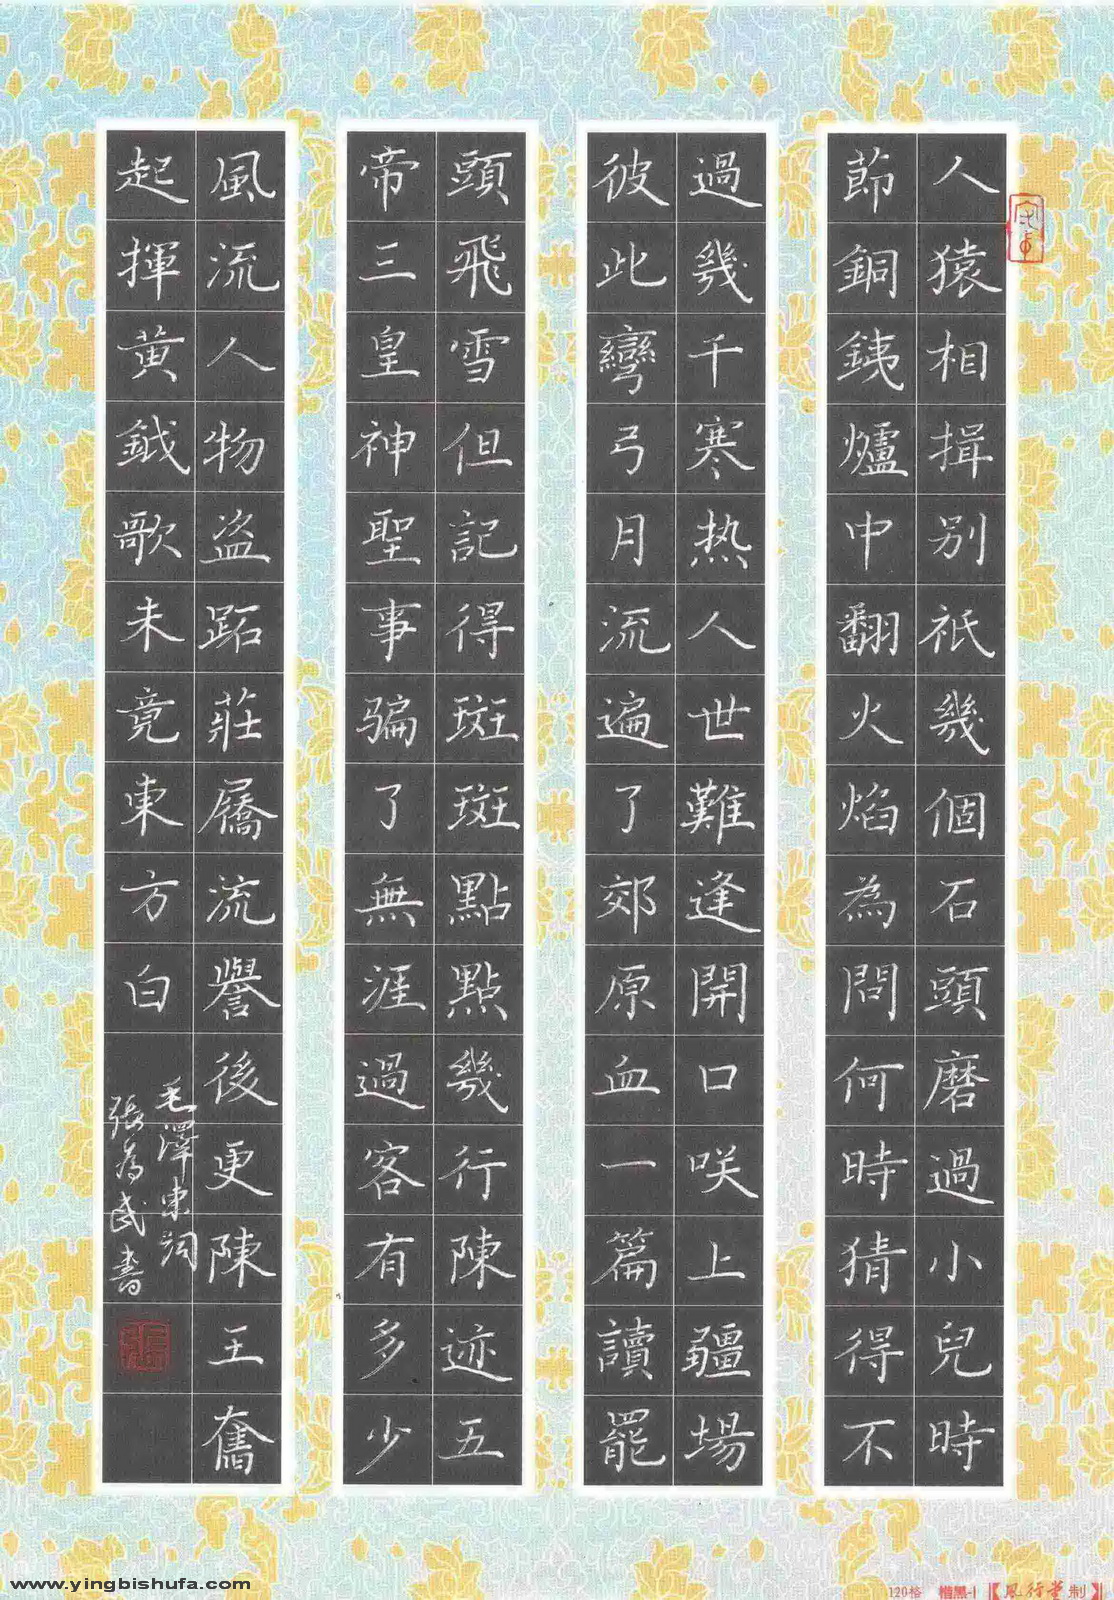 人猿相揖別祇幾個石頭磨過小兒時
節銅銕爐中翻火焰為問何時猜得不
過幾千寒热人世難逢開口咲上疆場
彼此彎弓月流遍了郊原血一篇讀罷
頭飛雪但記得斑斑點點幾行陳迹五
帝三皇神聖事骗了無涯過客有多少
風流人物盗跖莊屩流譽後更陳王奮
起揮黃鉞歌未竟東方白
毛澤東詞
張為民書
張
www.yingbishufa.com
120格 楷黑-1 【風行堂制】